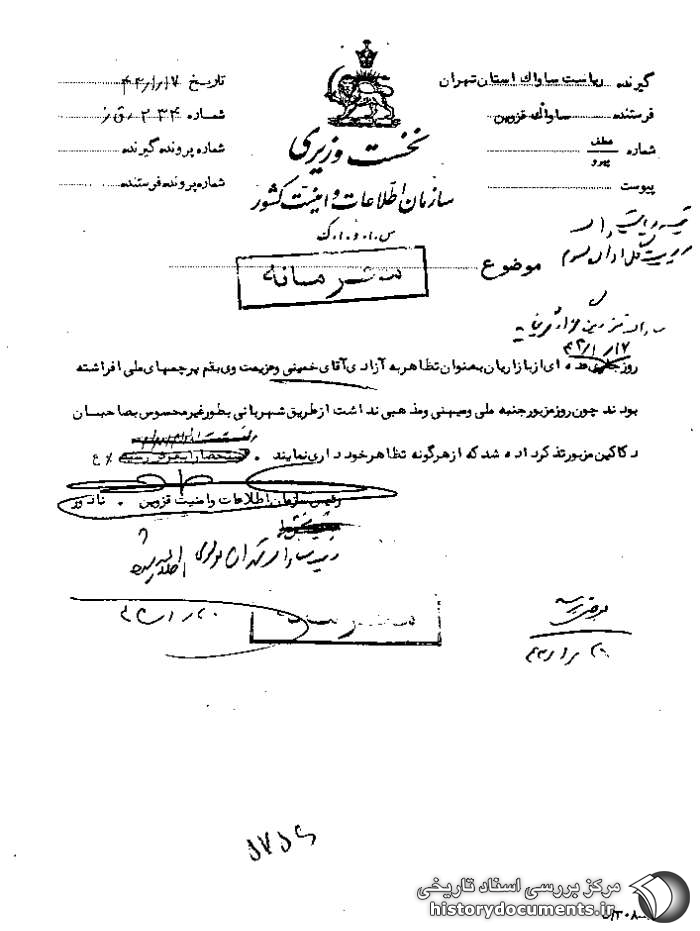 گیرنده ریاست ساواک استان تهران
تاریخ ۴۳/۱/۱۷
فرستنده ساواک قزوین
شماره ۲۳۴
شماره عطف پیرو
شماره پرونده گیرنده
پیوست
شماره پرونده فرستنده
نخست وزیری
سازمان اطلاعات و امنیت کشور
س.ا.و.ا.ک
موضوع
محرمانه
۴۳/۱/۱۷
روز عده ای از بازاریان بعنوان تظاهر به آزادی آقای خمینی و عزیمت وی بقم پرچمهای ملی افراشته
بودند چون روز مزبور جنبه ملی و میهنی و مذهبی نداشت از طریق شهربانی بطور غیر محسوس بصاحبان
دکاکین مزبور تذکر داده شد که از هرگونه تظاهر خودداری نمایند . ع
رئیس سازمان اطلاعات و امنیت قزوین .
رئیس ساواک تهران مولوی
محرمانه
مرکز بررسی اسناد تاریخی
historydocuments.ir